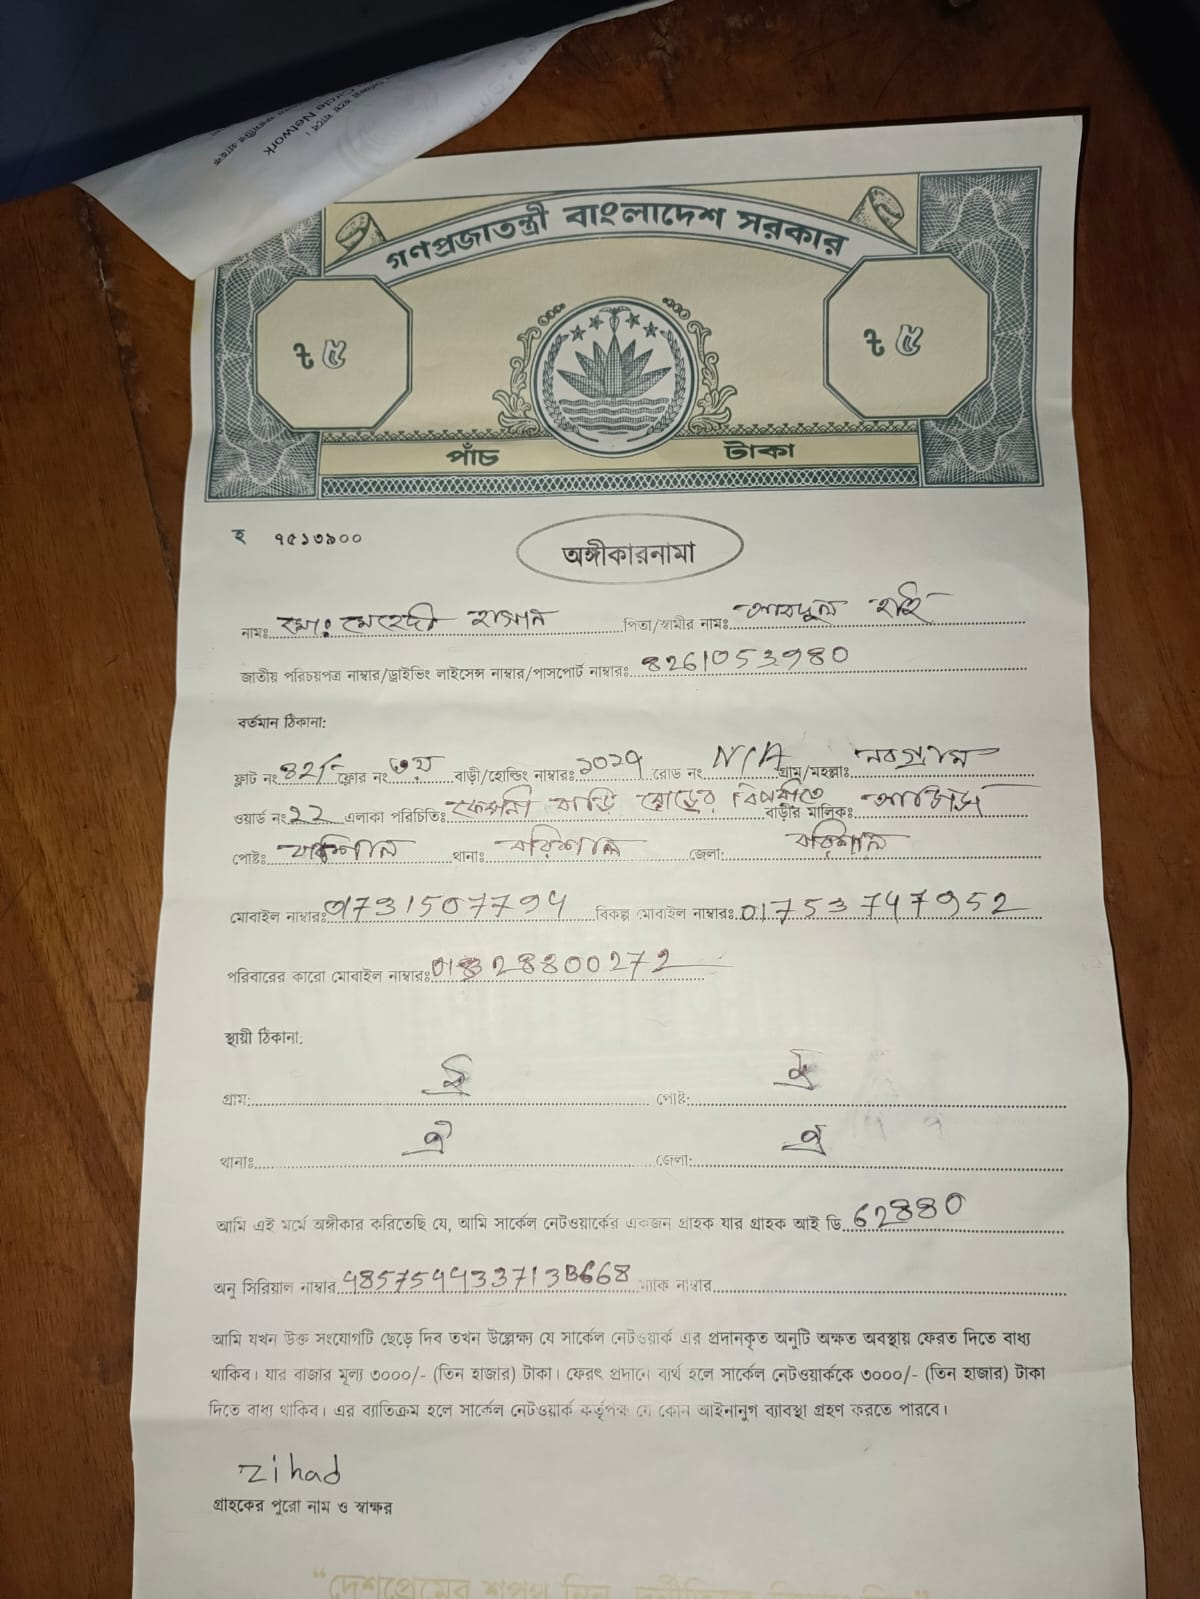 Circle Network
গণপ্রজাতন্ত্রী বাংলাদেশ সরকার
ট ৫ ট ৫
পাঁচ টাকা
হ ৭৫১৩৯০০
অঙ্গীকারনামা
নামঃ মোঃ মেহেদী হাসান পিতা/স্বামীর নাম: আবদুল হাই
জাতীয় পরিচয়পত্র নাম্বার/ড্রাইভিং লাইসেন্স নাম্বার/পাসপোর্ট নাম্বারঃ 8261053980
বর্তমান ঠিকানা:
ফ্লাট নং ফ্লোর নং ৩য় বাড়ী/হোল্ডিং নাম্বারঃ ১০২৭ রোড নং N/A গ্রাম/মহল্লাঃ নবগ্রাম
ওয়ার্ড নং 22 এলাকা পরিচিতিঃ বাড়ি বিপরীতে বাড়ীর মালিকঃ
পোষ্টঃ বরিশাল থানাঃ বরিশাল জেলা: বরিশাল
মোবাইল নাম্বারঃ 01731507794 বিকল্প মোবাইল নাম্বারঃ 01753747952
পরিবারের কারো মোবাইল নাম্বারঃ 01328800272
স্থায়ী ঠিকানা:
গ্রাম: ঐ পোষ্ট: ঐ
থানাঃ ঐ জেলা: ঐ
আমি এই মর্মে অঙ্গীকার করিতেছি যে, আমি সার্কেল নেটওয়ার্কের একজন গ্রাহক যার গ্রাহক আই ডি 62880
অনু সিরিয়াল নাম্বার 485754433713B668 ম্যাক নাম্বার
আমি যখন উক্ত সংযোগটি ছেড়ে দিব তখন উল্লেক্ষ্য যে সার্কেল নেটওয়ার্ক এর প্রদানকৃত অনুটি অক্ষত অবস্থায় ফেরত দিতে বাধ্য
থাকিব। যার বাজার মূল্য ৩০০০/- (তিন হাজার) টাকা। ফেরৎ প্রদানে ব্যর্থ হলে সার্কেল নেটওয়ার্ককে ৩০০০/- (তিন হাজার) টাকা
দিতে বাধ্য থাকিব। এর ব্যাতিক্রম হলে সার্কেল নেটওয়ার্ক কর্তৃপক্ষ যে কোন আইনানুগ ব্যাবস্থা গ্রহণ করতে পারবে।
Zihad
গ্রাহকের পুরো নাম ও স্বাক্ষর
“দেশপ্রেমের শপথ নিন, দুর্নীতিকে বিদায় দিন”